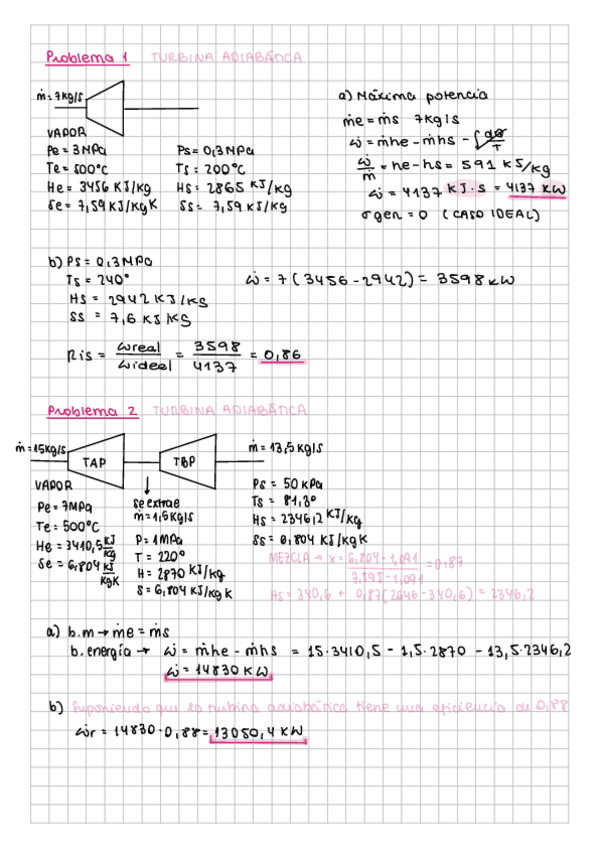 Problema 1 TURBINA ADIABÁTICA
ṁ = 7kg/s
VAPOR
Pe = 3MPa
Te = 500°C
He = 3456 KJ/kg
Se = 7,59 KJ/kgK
Ps = 0,3MPa
Ts = 200°C
Hs = 2865 KJ/kg
Ss = 7,59 KJ/kg
a) Máxima potencia
ṁe = ṁs 7kg/s
ω̇ = ṁhe - ṁhs - ∫dQ/T
ω̇/ṁ = he - hs = 591 KJ/kg
ω̇ = 4137 KJ·s = 4137 KW
σgen = 0 (CASO IDEAL)
b) Ps = 0,3MPa
Ts = 240°
Hs = 2942 KJ/KS
Ss = 7,6 KJ/KS
ω̇ = 7(3456 - 2942) = 3598 KW
Ris = ωreal/ωideal = 3598/4137 = 0,86
Problema 2 TURBINA ADIABÁTICA
ṁ = 15kg/s
TAP
TBP
ṁ = 13,5 kg/s
VAPOR
Pe = 7MPa
Te = 500°C
He = 3410,5 KJ/kg
Se = 6,804 KJ/kgK
se extrae
ṁ = 1,5kg/s
P = 1MPa
T = 220°
H = 2870 KJ/kg
S = 6,804 KJ/kgK
Ps = 50 KPa
Ts = 81,3°
Hs = 2346,2 KJ/kg
Ss = 6,804 KJ/kgK
MEZCLA → x = 6,804 - 1,091/7,593 - 1,091 = 0,87
Hs = 340,6 + 0,87(2646 - 340,6) = 2346,2
a) b.m → ṁe = ṁs
b. energía → ω̇ = ṁhe - ṁhs = 15·3410,5 - 1,5·2870 - 13,5·2346,2
ω̇ = 14830 KW
b) Suponiendo que la turbina adiabática tiene una eficiencia de 0,88
ω̇r = 14830·0,88 = 13050,4 KW